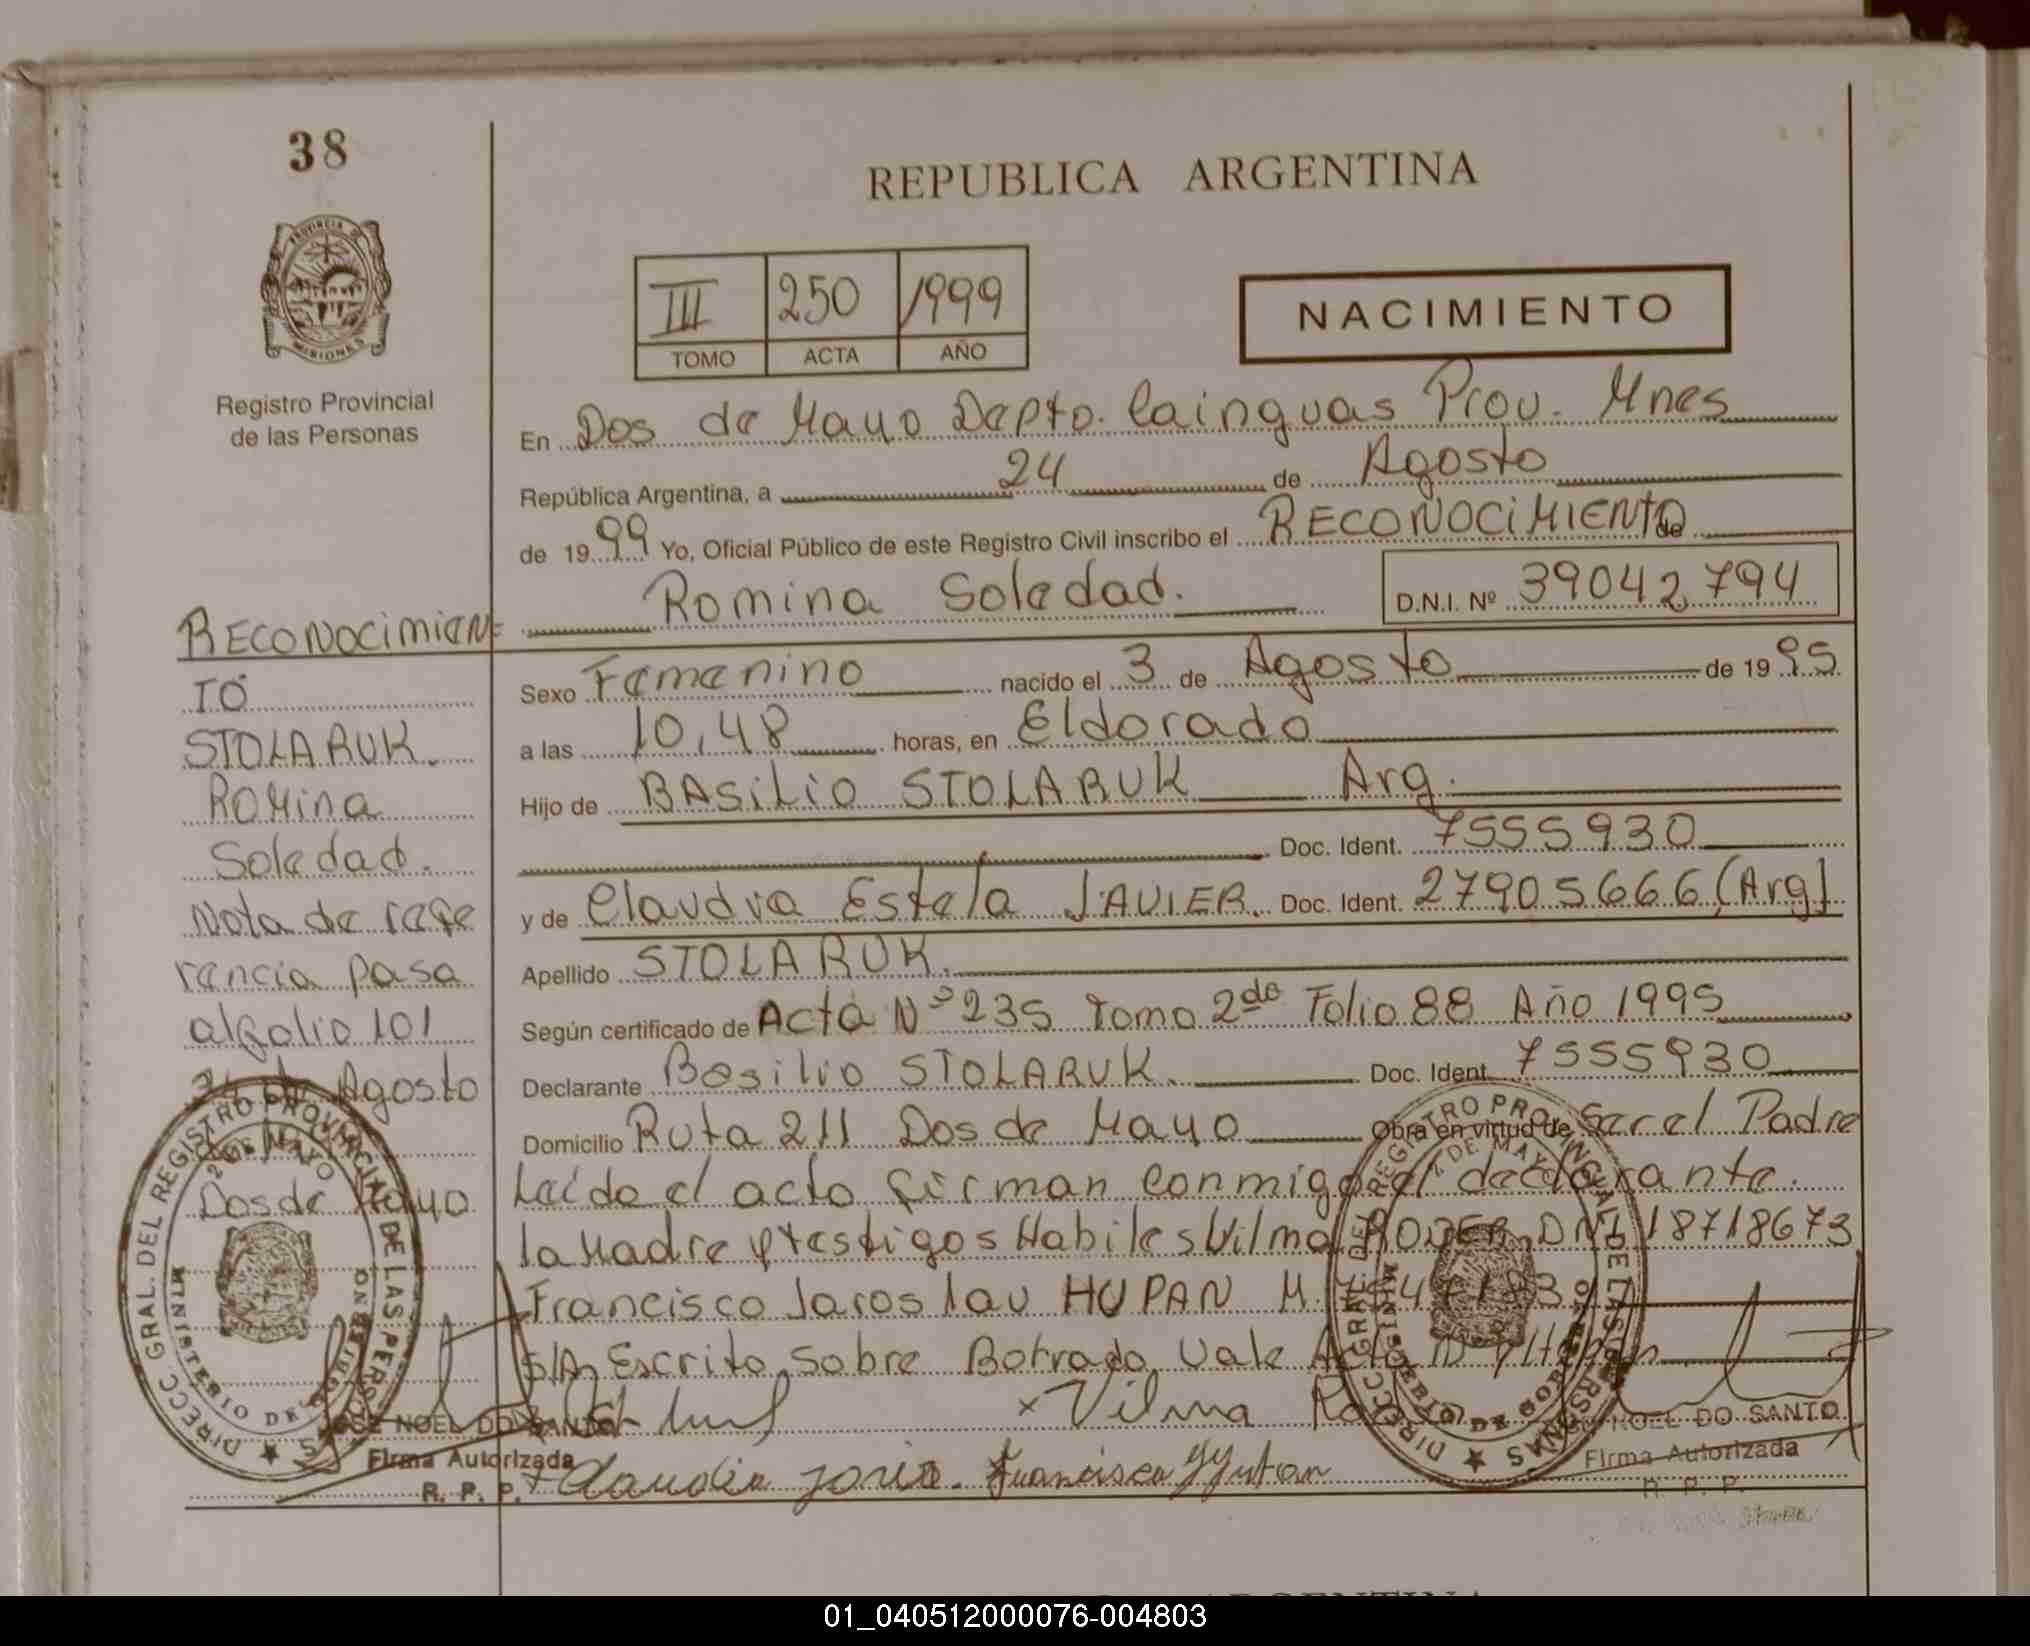 38
REPUBLICA ARGENTINA
PROVINCIA DE
MISIONES
Registro Provincial
de las Personas
III 250 1999
TOMO ACTA AÑO
NACIMIENTO
En Dos de Mayo Depto. Cainguas Prov. Mnes
República Argentina, a 24 de Agosto
de 1999 Yo, Oficial Público de este Registro Civil inscribo el RECONOCIMIENTO de
Romina Soledad. D.N.I. Nº 39042794
Sexo Femenino nacido el 3 de Agosto de 1995
a las 10,48 horas, en Eldorado
Hijo de BAsiLio STOLARUK Arg.
Doc. Ident. 7555930
y de Claudia Estela JAVIER. Doc. Ident. 27905666 (Arg)
Apellido STOLARUK.
Según certificado de Acta Nº 235 Tomo 2do Folio 88 Año 1995
Declarante Basilio STOLARUK. Doc. Ident. 7555930
Domicilio Ruta 211 Dos de Mayo Obra en virtud de Ser el Padre
Leído el acto firman conmigo el declarante.
la Madre y testigos Habiles Vilma RODER DNI 18718673
Francisco Jaroslau HUPAN M.
S/A Escrito Sobre Borrado Vale
Vilma
Claudia Francisco
RECONOCIMIEN=
TO
STOLARUK.
ROMina
Soledad.
Nota de refe
rencia pasa
al folio 101
de Agosto
Dos de Mayo
DIRECC. GRAL. DEL REGISTRO PROVINCIAL DE LAS PERSONAS
2 DE MAYO
MINISTERIO DE GOBIERNO
NOEL DO SANTO
Firma Autorizada
R. P. P.
DIRECC. GRAL. DEL REGISTRO PROVINCIAL DE LAS PERSONAS
DE MAYO
MINISTERIO DE GOBIERNO
NOEL DO SANTO
Firma Autorizada
R. P. P.
01_040512000076-004803